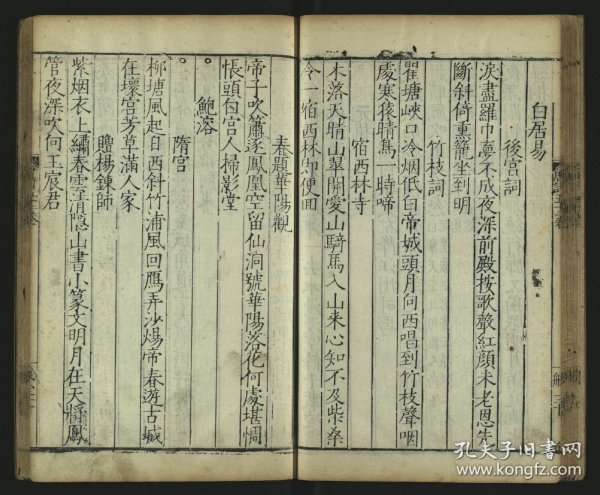 白居易
後宮詞
淚盡羅巾夢不成夜深前殿按歌聲紅顔未老恩先
斷斜倚熏籠坐到明
竹枝詞
瞿塘峽口冷烟低白帝城頭月向西唱到竹枝聲咽
處寒猿晴鳥一時啼
宿西林寺
木落天晴山翠開愛山騎馬入山來心知不及柴桑
令一宿西林却便回
春題華陽觀
帝子吹簫逐鳳凰空留仙洞號華陽落花何處堪惆
悵頭白宮人掃影堂
鮑溶
隋宮
柳塘風起日西斜竹浦風回鴈弄沙煬帝春遊古城
在壞宮芳草滿人家
贈楊鍊師
紫烟衣上繡春雲清隱山書小篆文明月在天將鳳
管夜深吹向玉宸君
孔夫子旧书网
www.kongfz.com